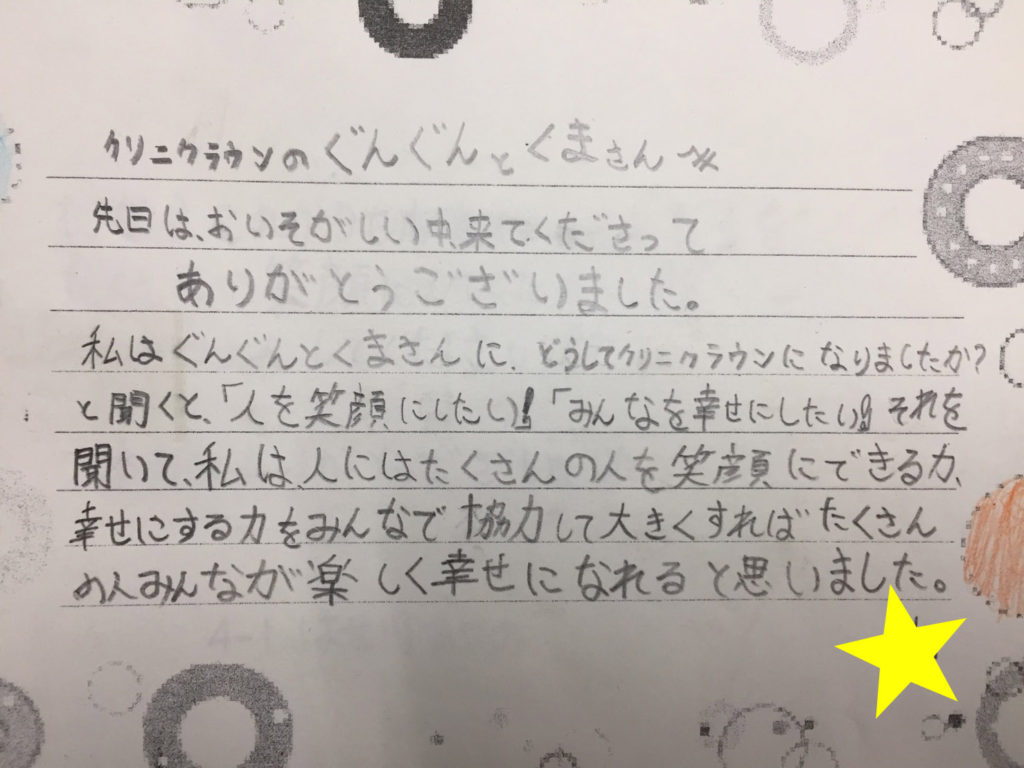 クリニクラウンのぐんぐんとくまさんへ
先日は、おいそがしい中、来てくださって
ありがとうございました。
私はぐんぐんとくまさんに、どうしてクリニクラウンになりましたか?
と聞くと、「人を笑顔にしたい!「みんなを幸せにしたい!」それを
聞いて、私は、人にはたくさんの人を笑顔にできる力、
幸せにする力をみんなで協力して大きくすればたくさん
の人みんなが楽しく幸せになれると思いました。